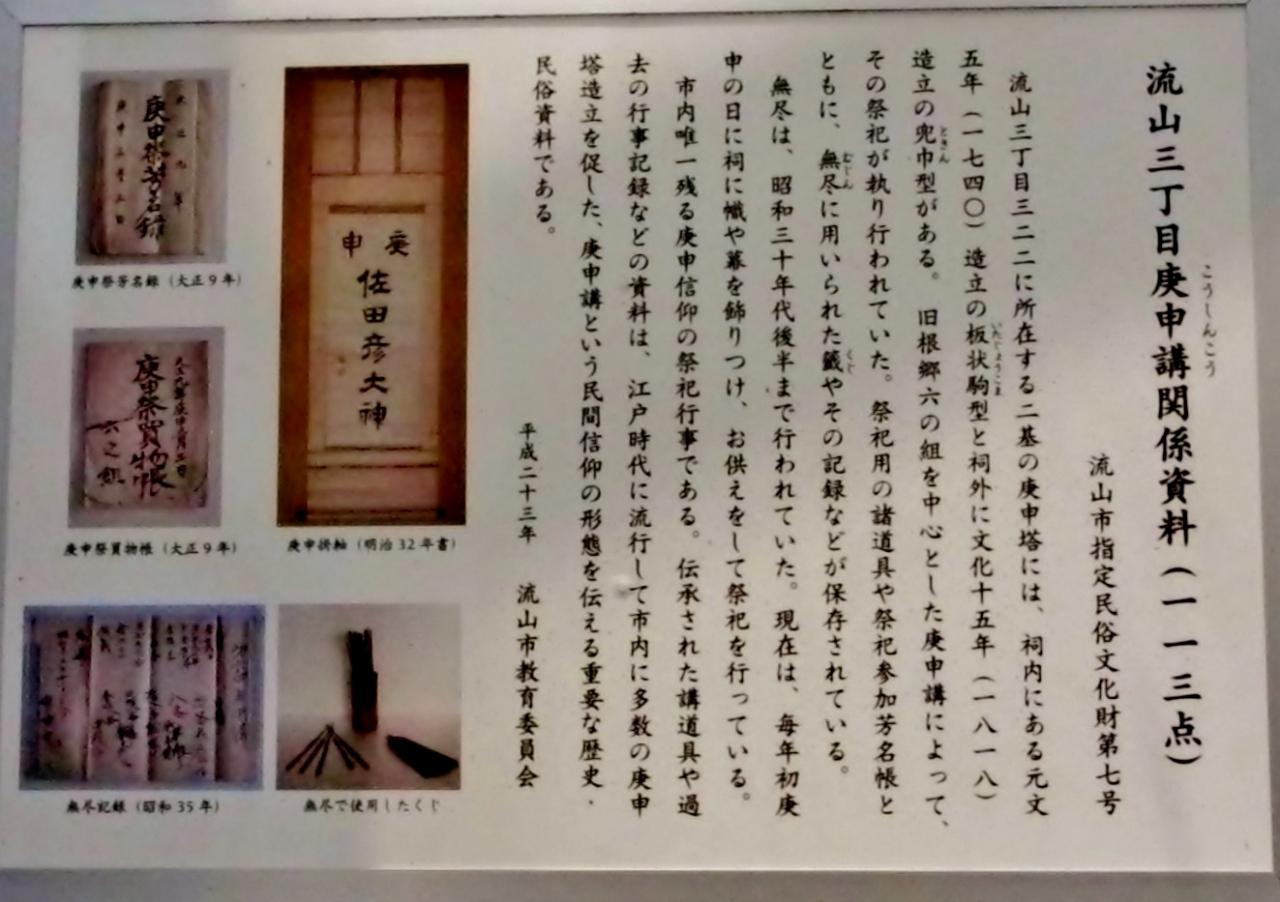 流山三丁目庚申講関係資料（一一三点）
こうしんこう
流山市指定民俗文化財第七号
流山三丁目三二二に所在する二基の庚申塔には、祠内にある元文
五年（一七四〇）造立の板状駒型と祠外に文化十五年（一八一八）
いたじょうこま
造立の兜巾型がある。旧根郷六の組を中心とした庚申講によって、
ときん
その祭祀が執り行われていた。祭祀用の諸道具や祭祀参加芳名帳と
ともに、無尽に用いられた籤やその記録などが保存されている。
むじん
くじ
無尽は、昭和三十年代後半まで行われていた。現在は、毎年初庚
申の日に祠に幟や幕を飾りつけ、お供えをして祭祀を行っている。
市内唯一残る庚申信仰の祭祀行事である。伝承された講道具や過
去の行事記録などの資料は、江戸時代に流行して市内に多数の庚申
塔造立を促した、庚申講という民間信仰の形態を伝える重要な歴史・
民俗資料である。
平成二十三年　流山市教育委員会
庚申
佐田彦大神
庚申掛軸（明治32年書）
大正九年
庚申祭芳名録
庚申祭芳名録（大正9年）
庚申祭買物帳
六之組
庚申祭買物帳（大正9年）
無尽で使用したくじ
無尽記録（昭和35年）